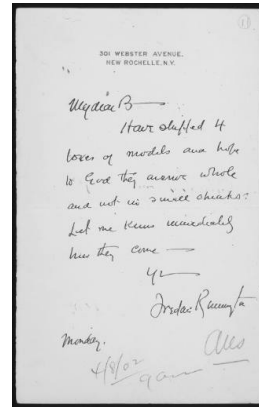 301 WEBSTER AVENUE,
NEW ROCHELLE, N.Y.
My dear B
Have shipped 4
boxes of models and hope
to God they arrive whole
and not in small chunks:
Let me know immediately
how they come —
Yr
Frederic Remington
Monday.
4/8/02